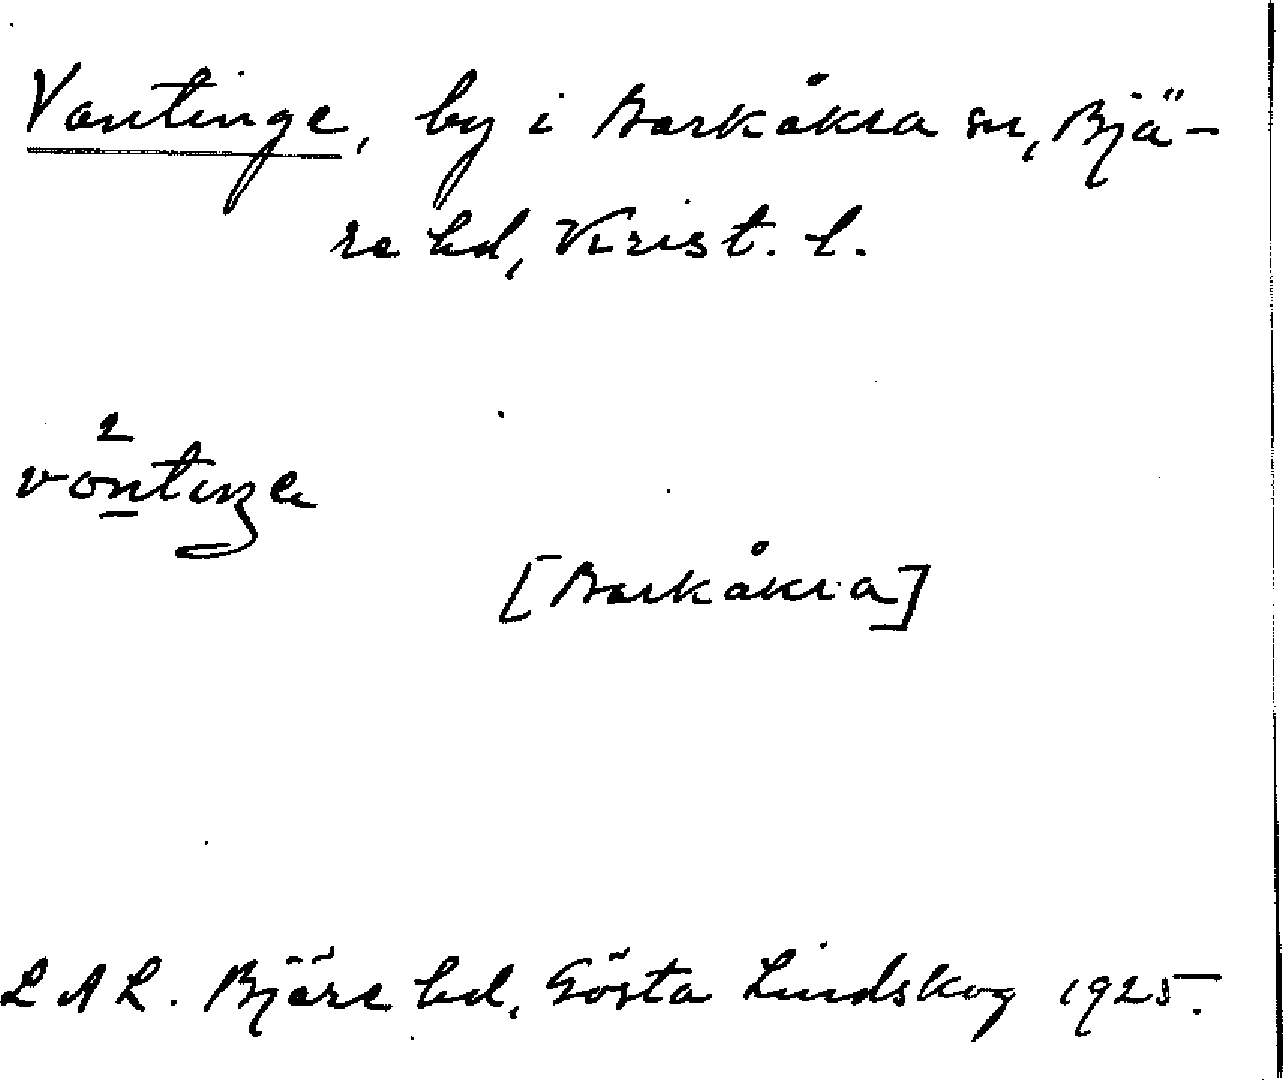 Vantinge, by i Barkåkra sn, Bjä-
re hd, Krist. l.
2
vontiŋe
[Barkåkra]
LAL. Bjäre hd, Gösta Lindskog 1925.